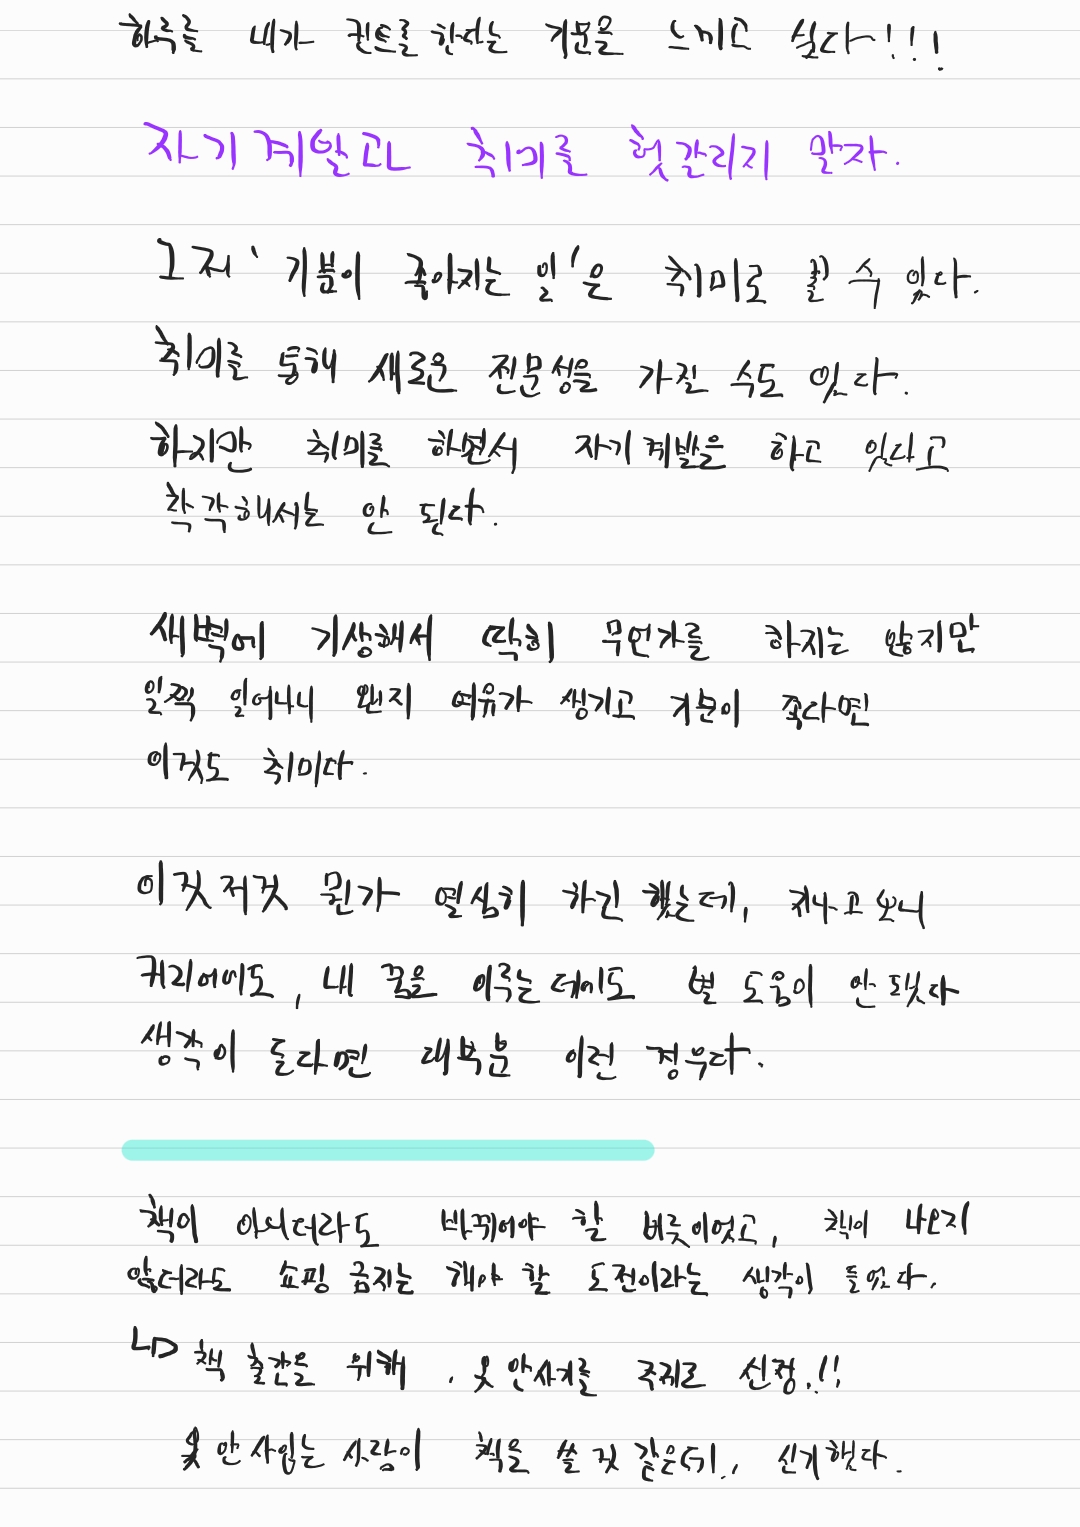 하루를 내가 컨트롤한다는 기분을 느끼고 싶다!!!
자기계발과 취미를 헷갈리지 말자.
그저 '기분이 좋아지는 일'은 취미로 볼 수 있다.
취미를 통해 새로운 전문성을 가질 수도 있다.
하지만 취미를 하면서 자기계발을 하고 있다고
착각해서는 안 된다.
새벽에 기상해서 딱히 무언가를 하지는 않지만
일찍 일어나니 왠지 여유가 생기고 기분이 좋다면
이것도 취미다.
이것저것 뭔가 열심히 하긴 했는데, 지나고 보니
커리어에도, 내 꿈을 이루는데에도 별 도움이 안 됐다
생각이 든다면 대부분 이런 경우다.
책이 아니더라도 바꿔어야 할 버릇이었고, 책이 나오지
않더라도 쇼핑 금지는 해야 할 도전이라는 생각이 들었다.
책 출간을 위해, 옷 안사기를 주제로 선정.!!
옷 안 사입는 사람이 책을 쓸 것 같은데.., 신기했다.